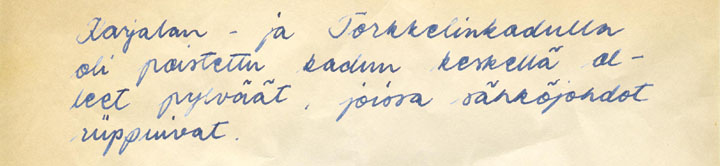 Karjalan - ja Torkkelinkadulla
oli poistettu kadun keskellä ol-
leet pylväät, joissa sähköjohdot
riippuivat.